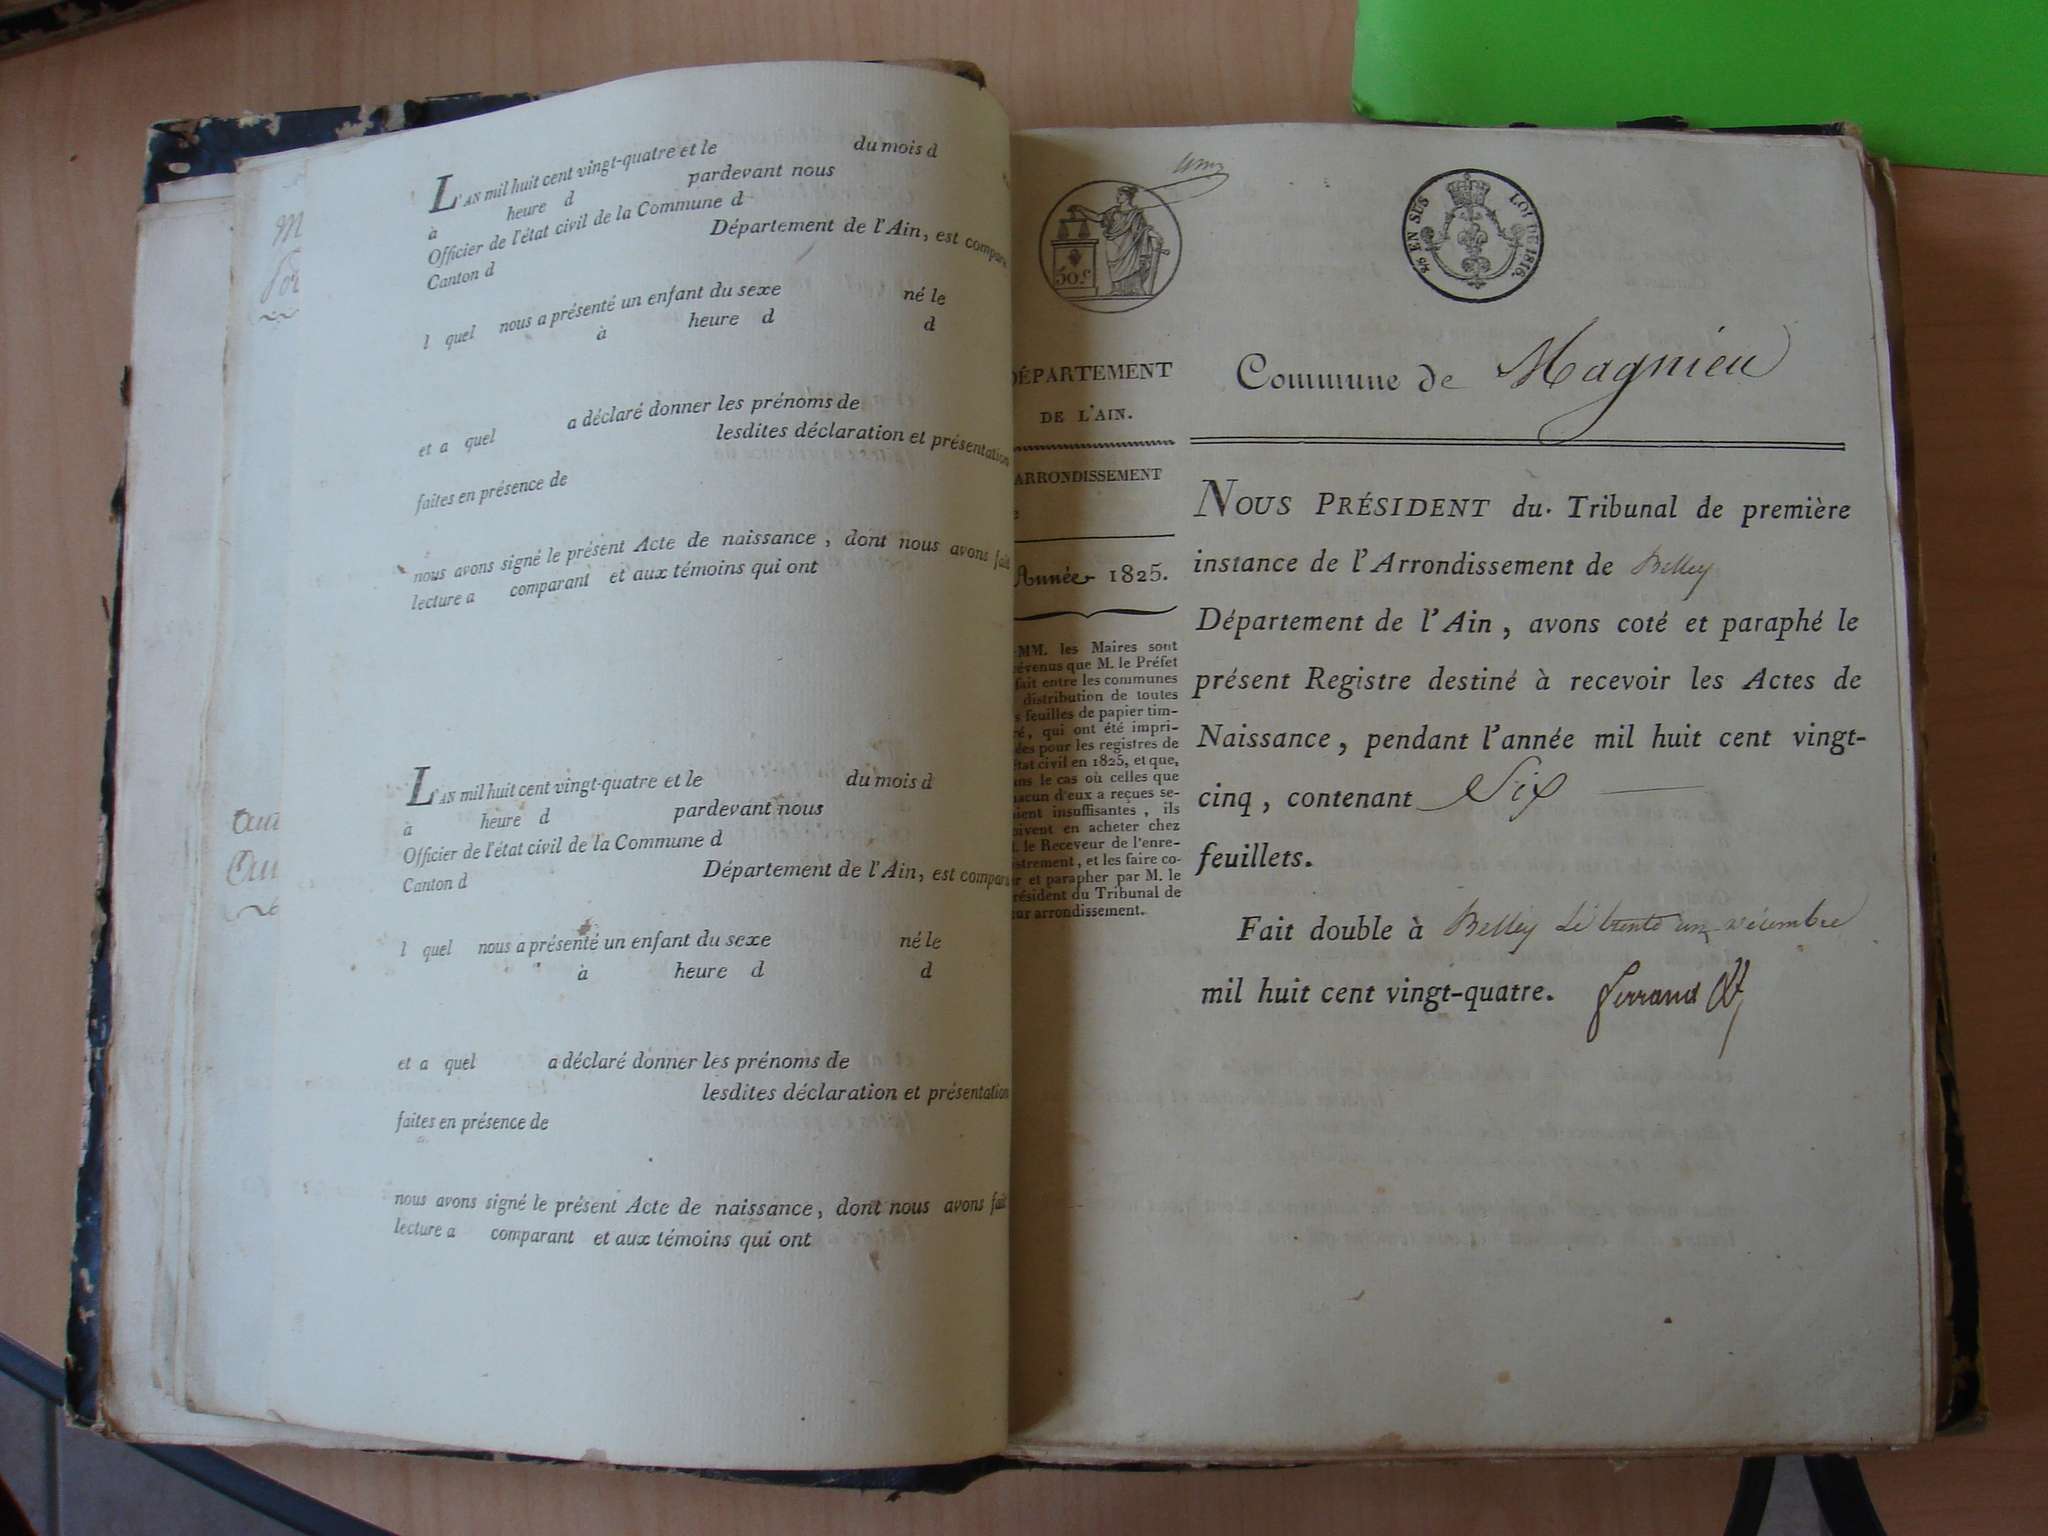 L'AN mil huit cent vingt-quatre et le du mois d
à heure d pardevant nous
Officier de l'état civil de la Commune d
Canton d Département de l'Ain, est compar
l quel nous a présenté un enfant du sexe né le
à heure d d
et a quel a déclaré donner les prénoms de
lesdites déclaration et présentation
faites en présence de
nous avons signé le présent Acte de naissance, dont nous avons fait
lecture a comparant et aux témoins qui ont
L'AN mil huit cent vingt-quatre et le du mois d
à heure d pardevant nous
Officier de l'état civil de la Commune d
Canton d Département de l'Ain, est compar
l quel nous a présenté un enfant du sexe né le
à heure d d
et a quel a déclaré donner les prénoms de
lesdites déclaration et présentation
faites en présence de
nous avons signé le présent Acte de naissance, dont nous avons fait
lecture a comparant et aux témoins qui ont
50 c
EN SUS LOI DE 1816.
DÉPARTEMENT
DE L'AIN.
ARRONDISSEMENT
Année 1825.
MM. les Maires sont
évenus que M. le Préfet
fait entre les communes
distribution de toutes
s feuilles de papier tim-
ré, qui ont été impri-
ées pour les registres de
état civil en 1825, et que,
ans le cas où celles que
hacun d'eux a reçues se-
aient insuffisantes, ils
oivent en acheter chez
. le Receveur de l'enre-
istrement, et les faire co-
er et parapher par M. le
résident du Tribunal de
ur arrondissement.
Commune de Magnieu
NOUS PRÉSIDENT du Tribunal de première
instance de l'Arrondissement de Belley
Département de l'Ain, avons coté et paraphé le
présent Registre destiné à recevoir les Actes de
Naissance, pendant l'année mil huit cent vingt-
cinq, contenant Six
feuillets.
Fait double à Belley Le trente un décembre
mil huit cent vingt-quatre. Ferrand